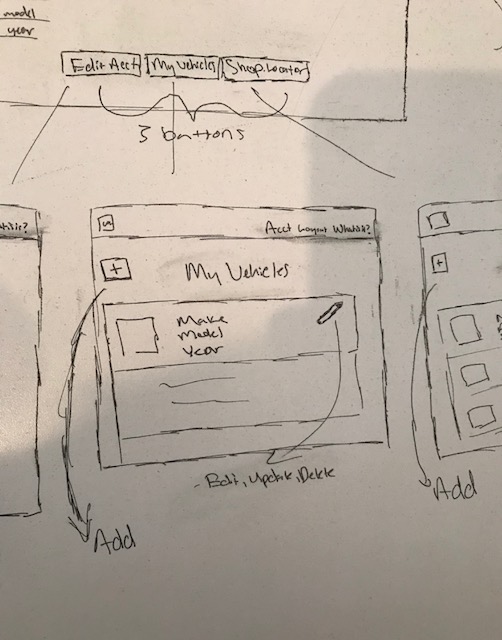 model
year
Edit Acct My Vehicles Shop. Locator
3 buttons
Whatisit?
Acct Logout Whatisit?
+ My Vehicles
+
Make
Model
Year
- Edit, Update, Delete
Add
Add